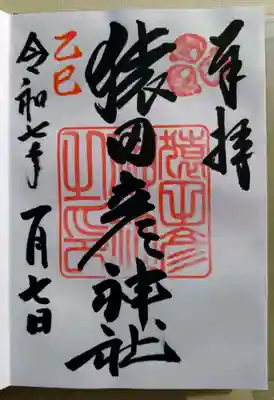 奉拝
猿田彦神社
乙巳
令和七年 一月七日
猿田彦
之印